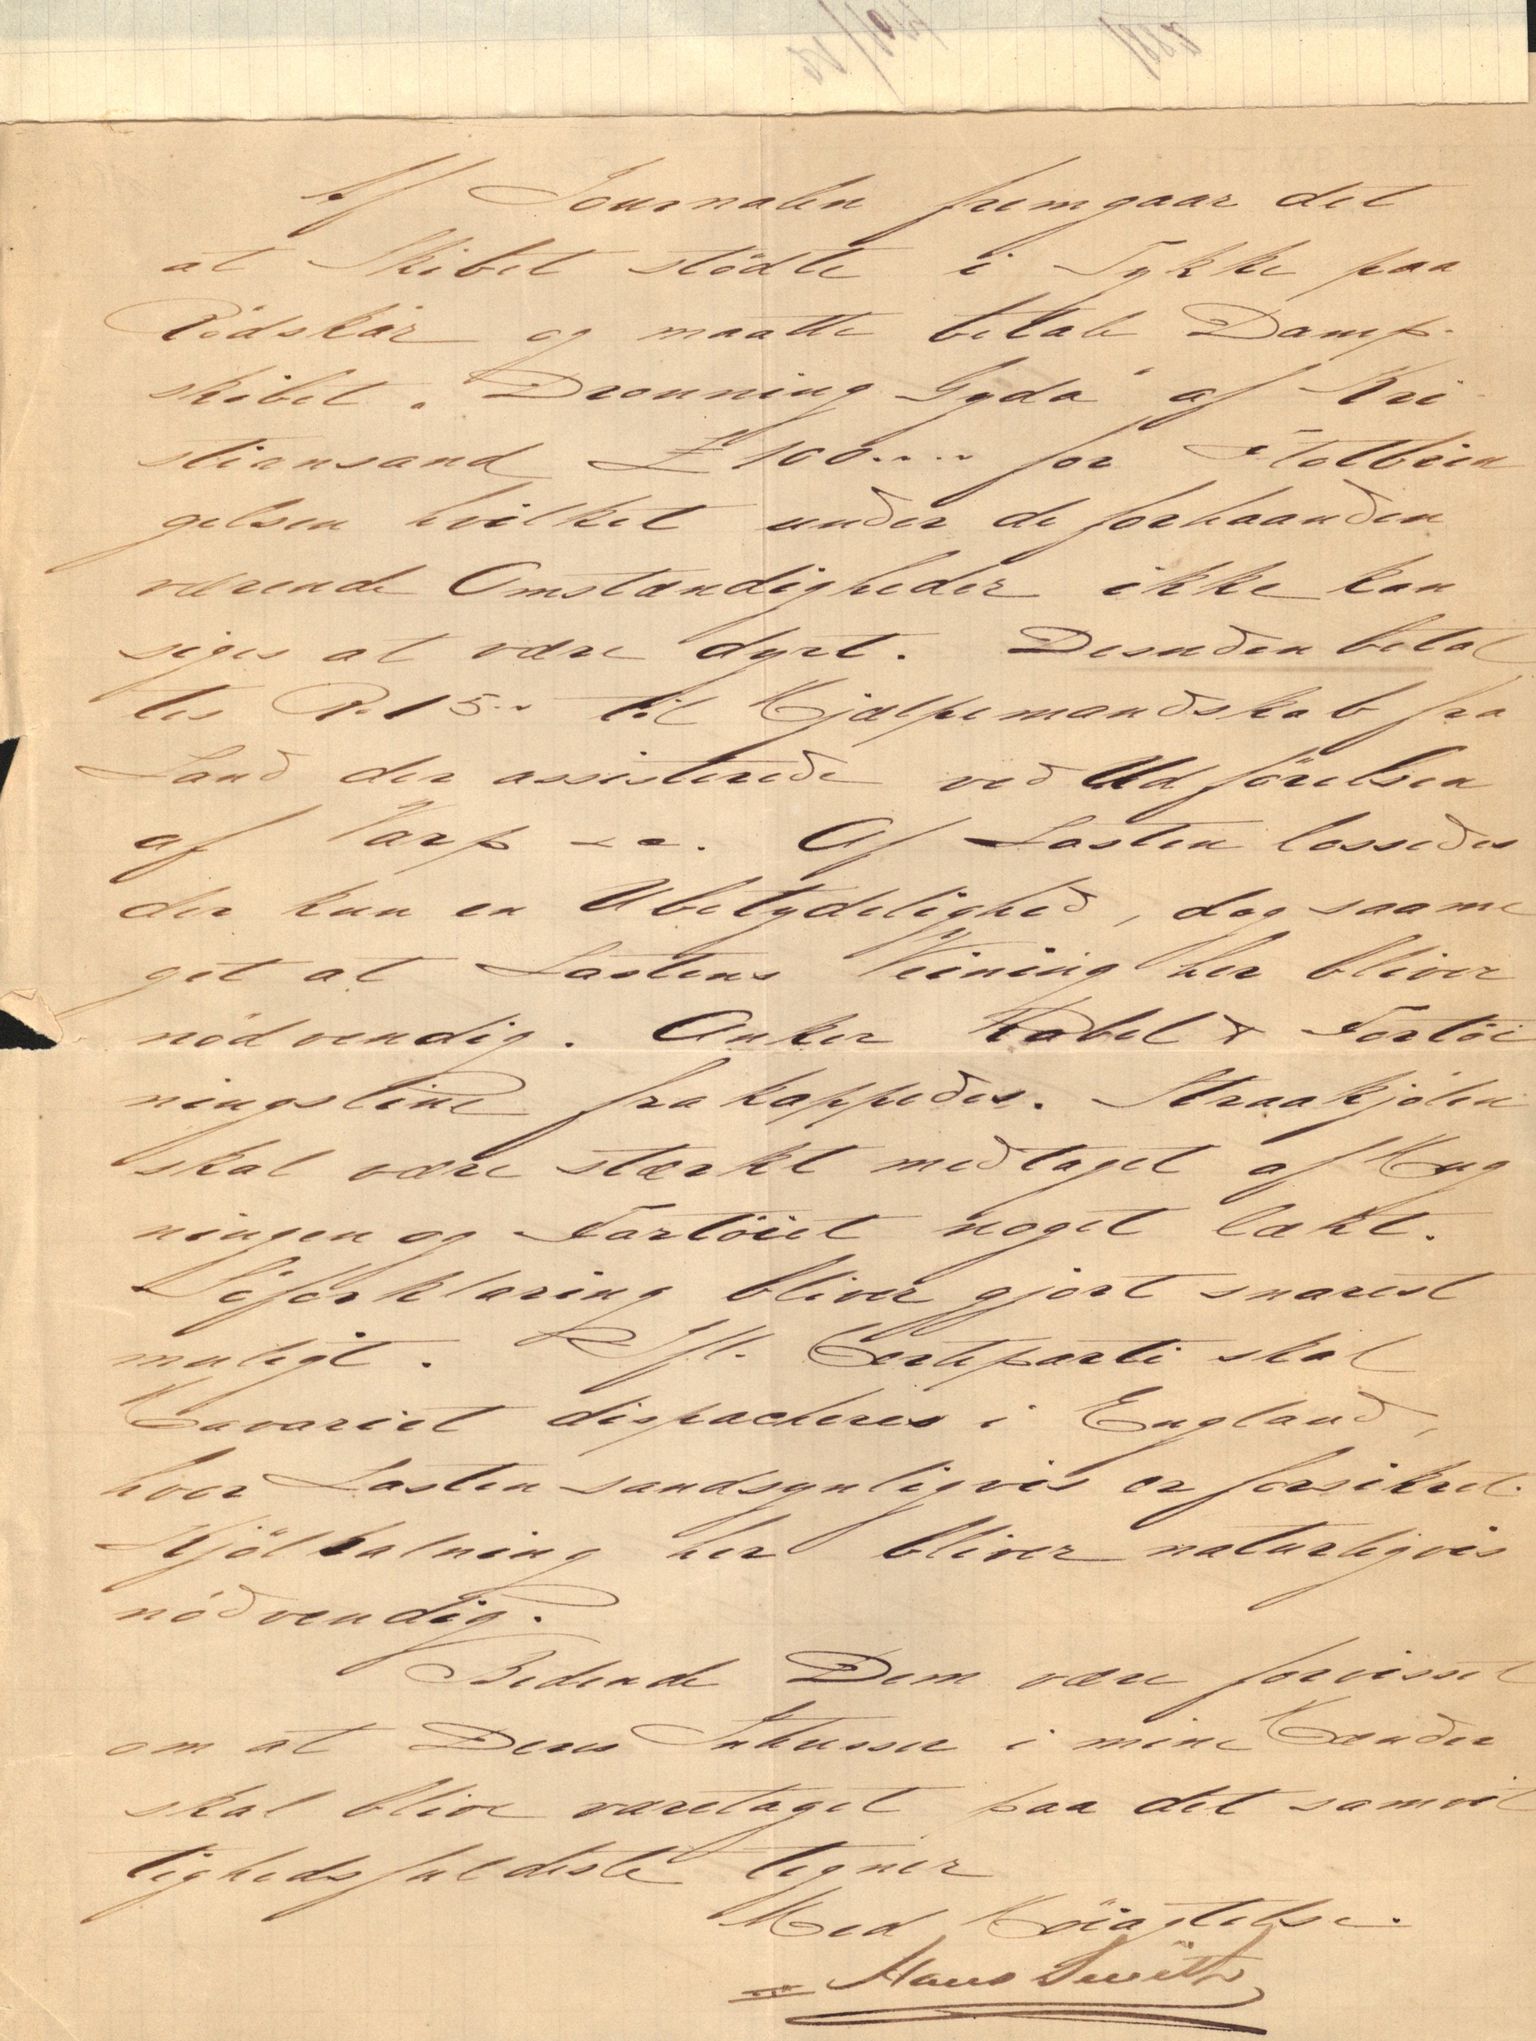 Af Journalen fremgaar det
at Skibet stödte i Tykke paa
Rödskär og maatte betale Damp-
skibet "Dronning Gyda" af Kri-
stiansand £ 100.... for Flotbrin
gelsen hvilket under de forhaanden
værende Omstændigheder ikke kan
siges at være dyrt. Desuden betal
tes R. 15.. til Hjælpemandskab fra
Land der assisterede ved Udförelsen
af Varp. Af Lasten lossedes
der kun en Ubetydelighed, dog saame
get at Lastens Veining her bliver
nödvendig. Anker Kabel & Fortöi
ningsline frakappedes. Straakjölen
skal være stærkt medtaget af Hug
ningen og Fartöiet noget lækt.
Söforklaring bliver gjort snarest
muligt. Ifl. Certeparti skal
Havariet dispacheres i England,
hvor Lasten sandsynligvis er forsikret.
Kjölhalning her bliver naturligvis
nödvendig.
Bedende Dem være forvisset
om at Deres Intresser i mine Hænder
skal blive varetaget paa det samvit
tighedsfuldeste tegner
Med Höiagtelse.
Hans Smith